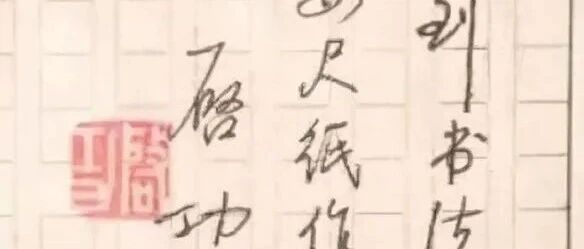 到书法
尺纸作
启功
启功